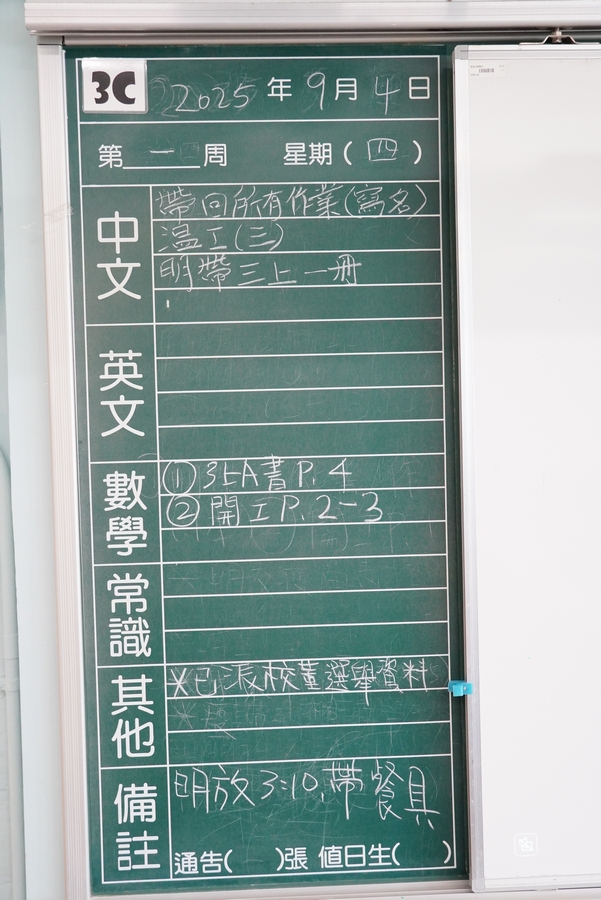 3C 2025年9月4日
第一周 星期(四)
中文
帶回所有作業(寫名)
温工(三)
明帶三上一冊
英文
數學
① 3上A書P.4
② 開工P.2-3
常識
其他
*已派校董選舉資料
備註
明放3:10,帶餐具
通告( )張 值日生( )